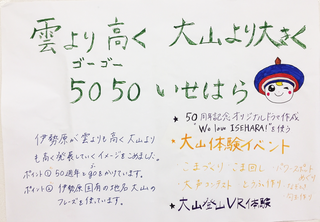 雲より高く 大山より大きく
ゴーゴー
5050いせはら
伊勢原が雲よりも高く大山より
も高く発展していくイメージをこめました。
ポイント① 50周年とgoをかけています。
ポイント② 伊勢原固有の地名大山の
フレーズを使っています。
★50周年記念オリジナルドラマ作成
"We love ISEHARA!"を使う
★大山体験イベント
こまづくり こま回し パワースポット
★大山登山VR体験